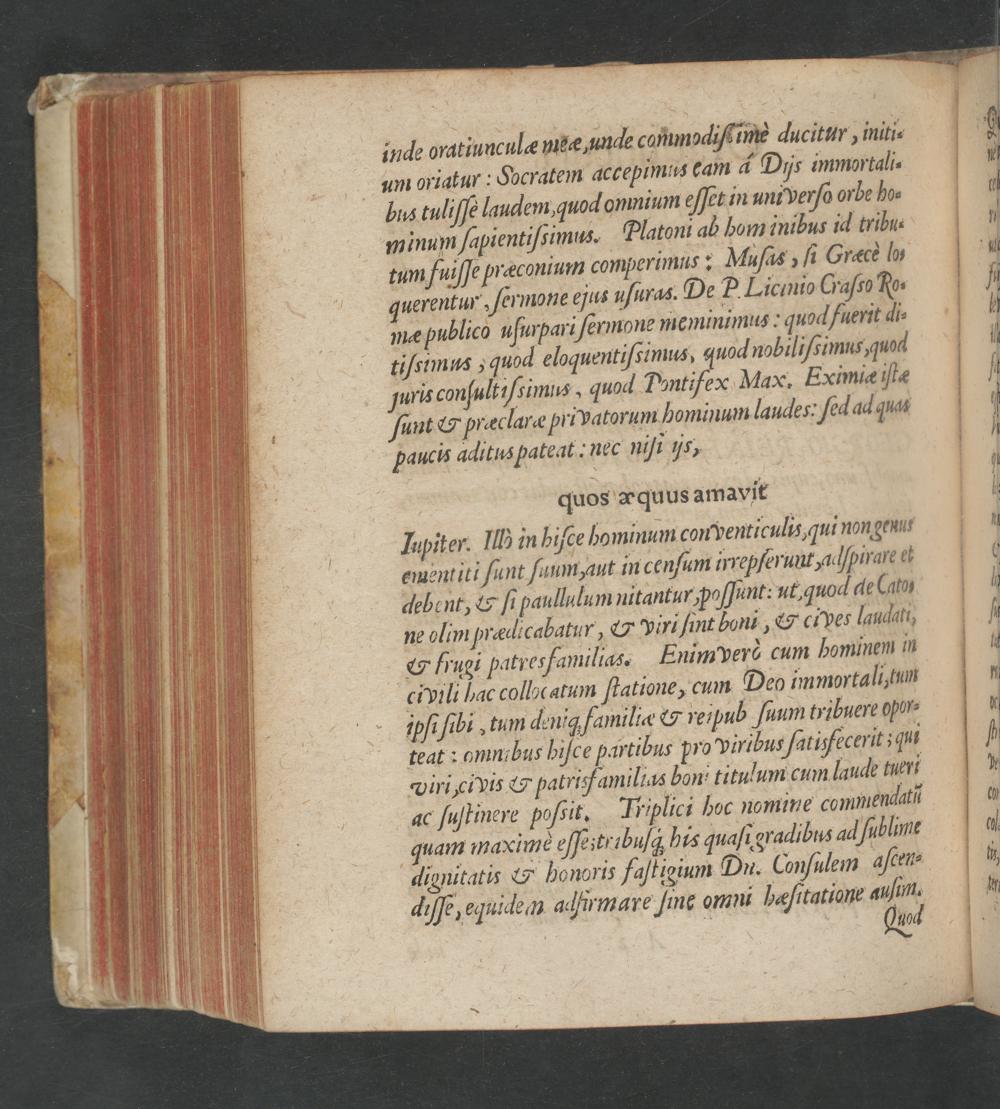 inde oratiunculæ meæ, unde commodiſſimè ducitur, initi-
um oriatur: Socratem accepimus eam á Dijs immortali-
bus tuliſſè laudem, quod omnium eſſet in univerſo orbe ho-
minum ſapientiſsimus. Platoni ab hominibus id tribu-
tum fuiſſe præconium comperimus: Muſas, ſi Græcè lo-
querentur, ſermone ejus uſuras. De P. Licinio Craſso Ro-
mæ publico uſurpari ſermone meminimus: quod fuerit di-
tiſsimus, quod eloquentiſsimus, quod nobiliſsimus, quod
juris conſultiſsimus, quod Pontifex Max. Eximiæ iſtæ
ſunt & præclaræ privatorum hominum laudes: ſed ad quas
paucis aditus pateat: nec niſi ijs,
quos æquus amavit
Iupiter. Illò in hiſce hominum conventiculis, qui non genus
ementiti ſunt ſuum, aut in cenſum irrepſerunt, adſpirare et
debent, & ſi paullulum nitantur, poſſunt: ut, quod de Cato-
ne olim prædicabatur, & viri ſint boni, & cives laudati,
& frugi patresfamilias. Enimverò cum hominem in
civili hac collocatum ſtatione, cum Deo immortali, tum
ipſi ſibi, tum deniq; familiæ & reipub ſuum tribuere opor-
teat: omnibus hiſce partibus pro viribus ſatisfecerit; qui
viri, civis & patrisfamilias boni titulum cum laude tueri
ac ſuſtinere poſsit. Triplici hoc nomine commendatū
quam maximè eſſe; tribuſq; his quaſi gradibus ad ſublime
dignitatis & honoris faſtigium Dn. Conſulem aſcen-
diſſe, equidem adfirmare ſine omni hæſitatione auſim.
Quod